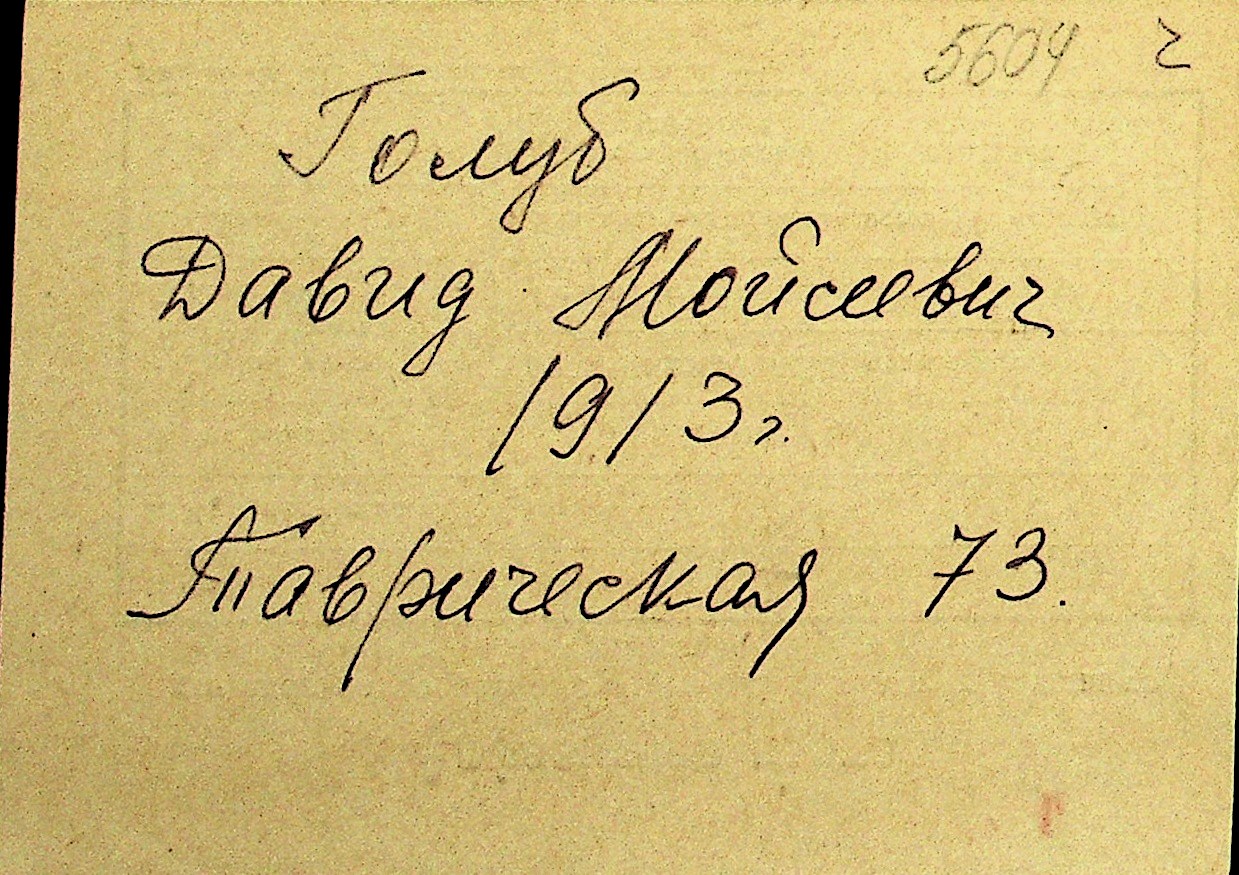 5604 ч
Голуб
Давид Мойсеевич
1913 г.
Таврическая 73.